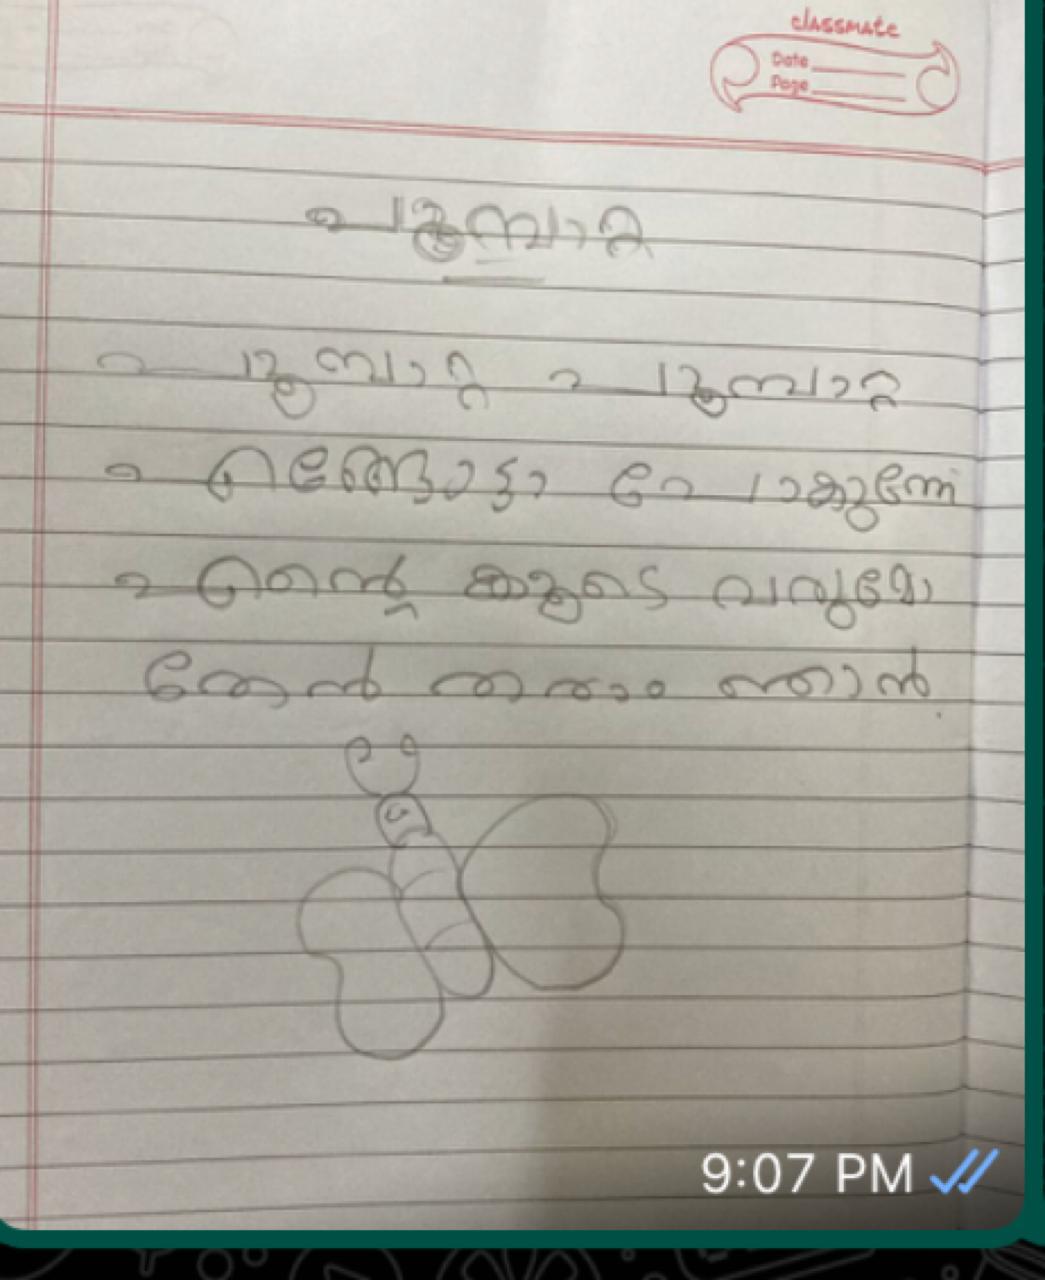 classmate
Date
Page
പൂമ്പാറ്റ
പൂമ്പാറ്റ പൂമ്പാറ്റ
എങ്ങോട്ടാ പോകുന്നേ
എന്റെ കൂടെ വരുമോ
തേൻ തരാം ഞാൻ.
9:07 PM